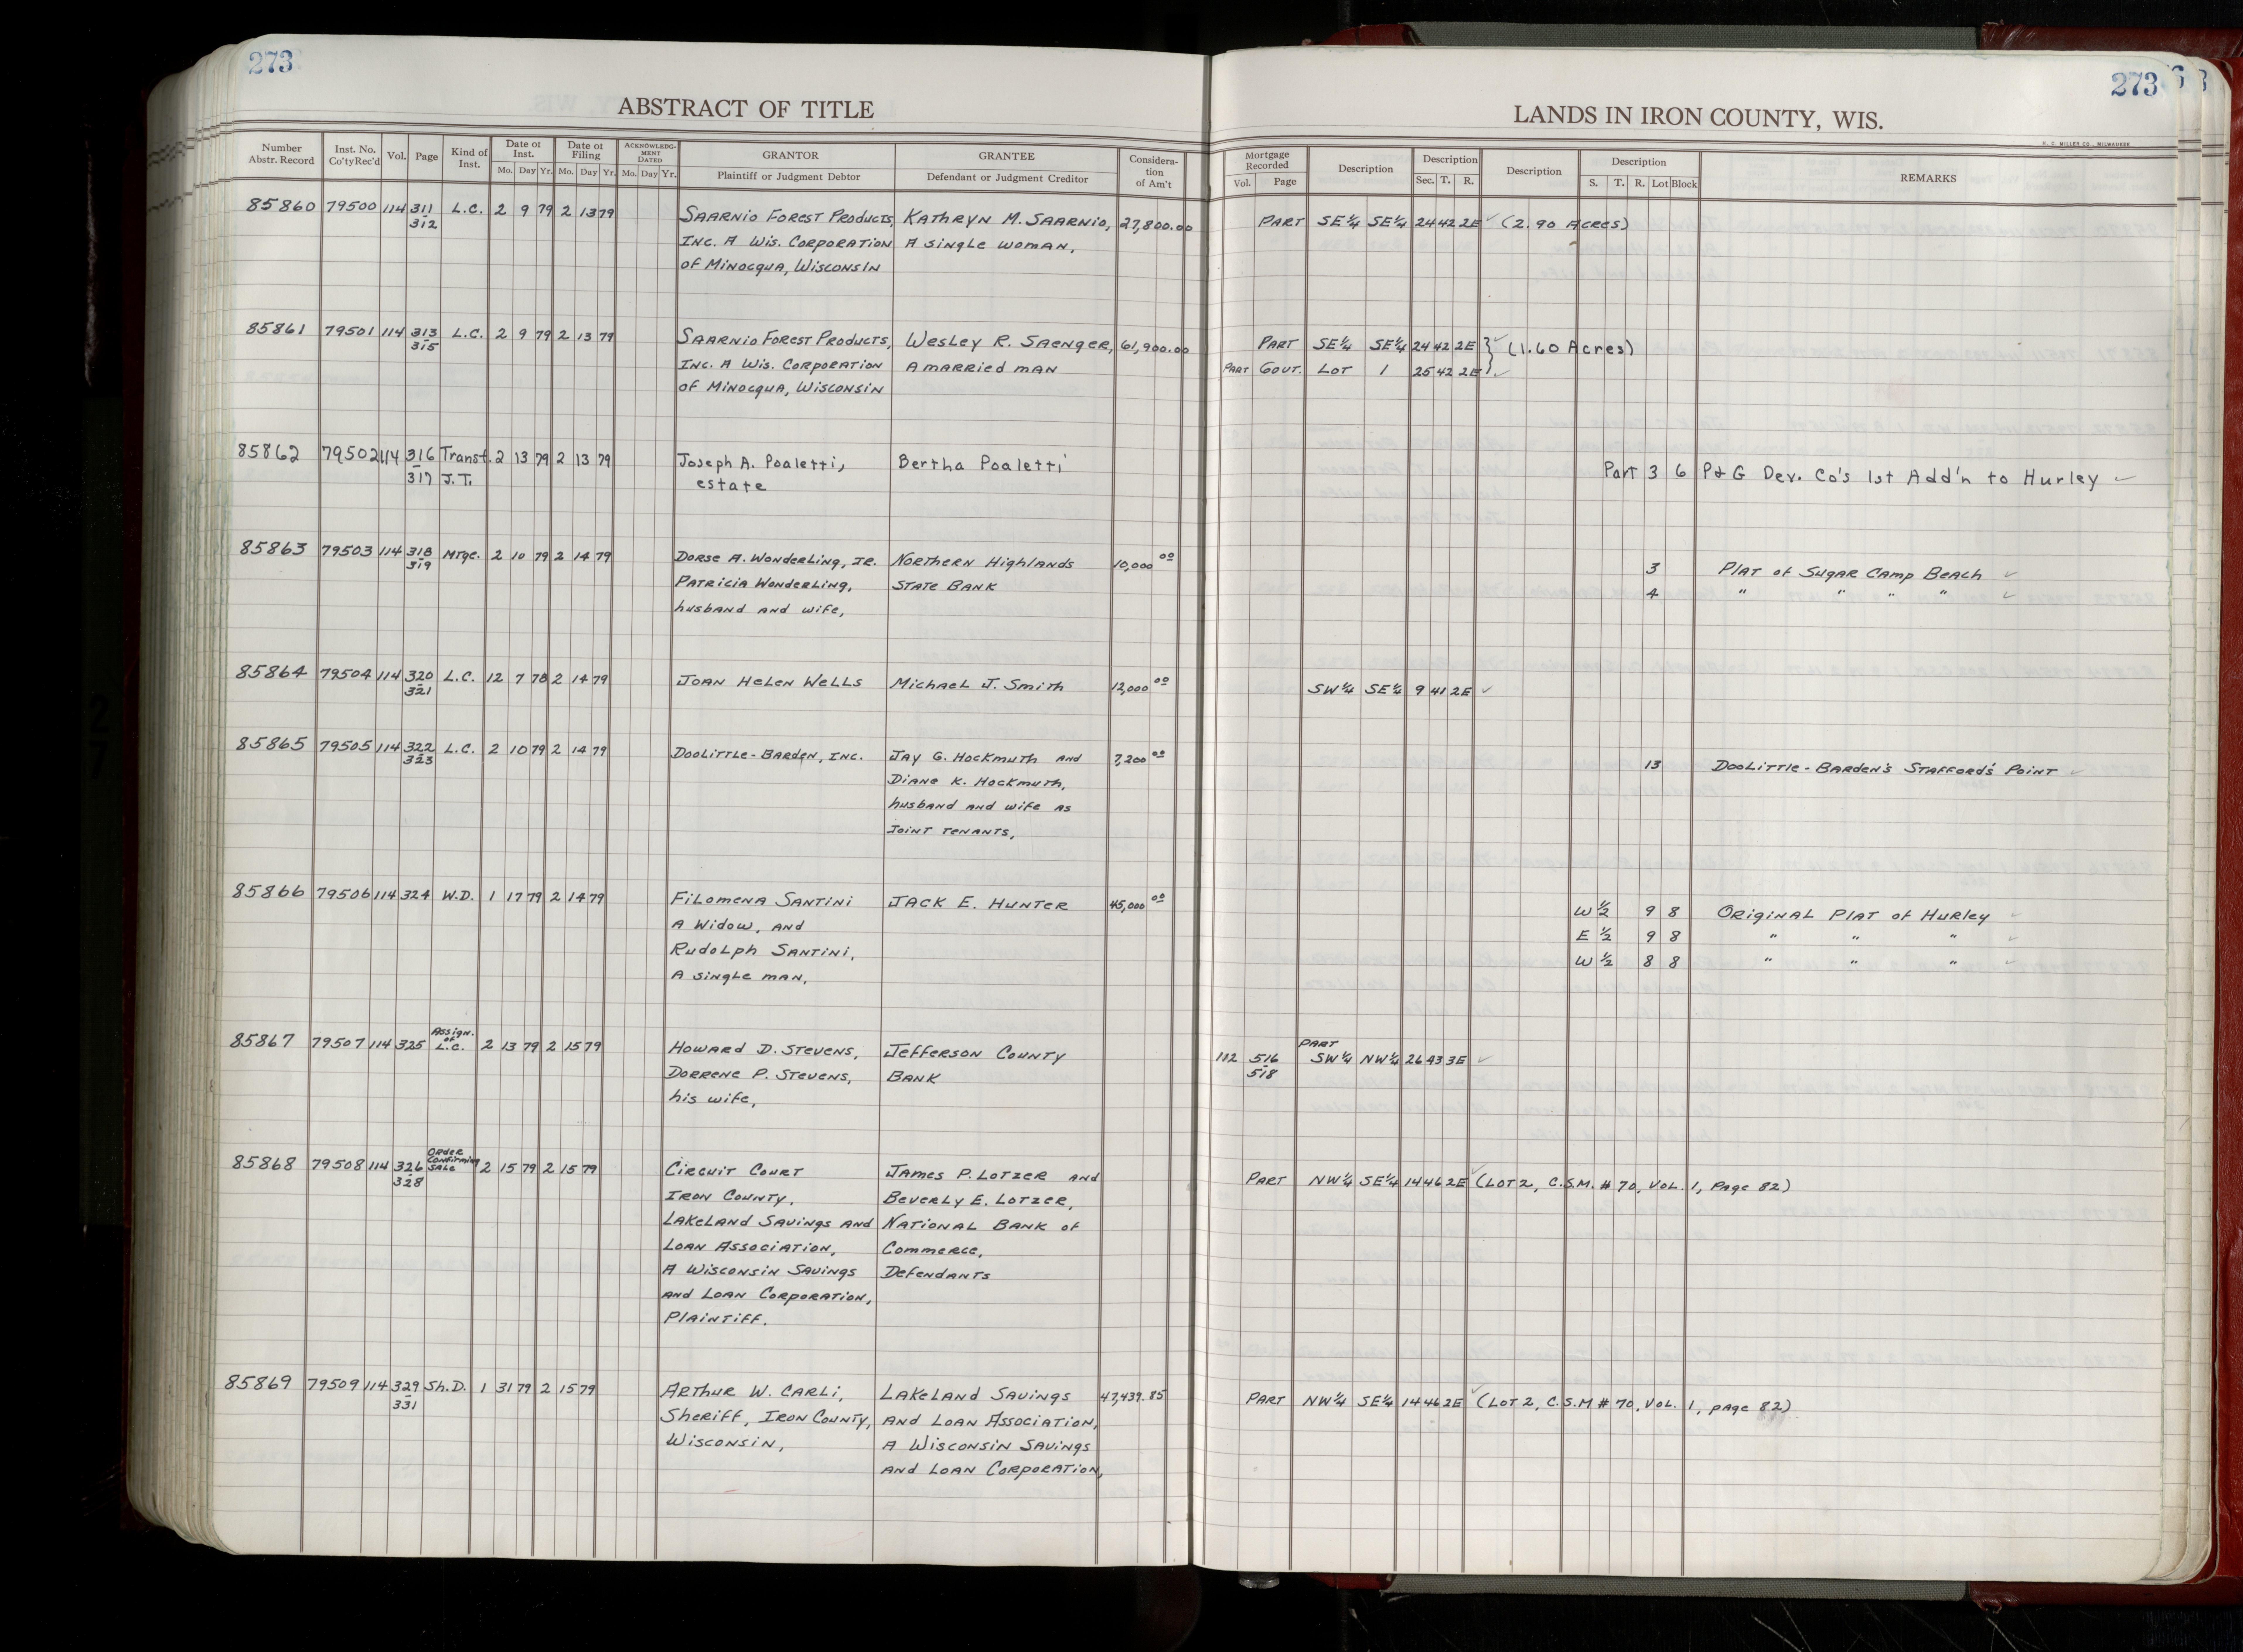 273
273
ABSTRACT OF TITLE
LANDS IN IRON COUNTY, WIS.
H. C. MILLER CO., MILWAUKEE
Number Abstr. Record | Inst. No. Co'ty Rec'd | Vol. | Page | Kind of Inst. | Date of Inst. Mo. Day Yr. | Date of Filing Mo. Day Yr. | ACKNOWLEDGMENT DATED Mo. Day Yr. | GRANTOR Plaintiff or Judgment Debtor | GRANTEE Defendant or Judgment Creditor | Consideration of Am't | Mortgage Recorded Vol. Page | Description | Description Sec. T. R. | Description | Description S. T. R. Lot Block | REMARKS
85860 79500 114 311 - 312 L.C. 2 9 79 2 13 79 Saarnio Forest Products, Kathryn M. Saarnio, 27,800.00 Part SE¼ SE¼ 24 42 2E ✓ (2.90 Acres)
Inc. A Wis. Corporation A single woman,
of Minocqua, Wisconsin
85861 79501 114 313 - 315 L.C. 2 9 79 2 13 79 Saarnio Forest Products, Wesley R. Saenger, 61,900.00 Part SE¼ SE¼ 24 42 2E } ✓ (1.60 Acres)
Inc. A Wis. Corporation A married man Part Gout. Lot 1 25 42 2E } ✓
of Minocqua, Wisconsin
85862 79502 114 316 - 317 Transf. J.T. 2 13 79 2 13 79 Joseph A. Poaletti, Bertha Poaletti Part 3 6 P & G Dev. Co's 1st Add'n to Hurley ✓
estate
85863 79503 114 318 - 319 Mtge. 2 10 79 2 14 79 Dorse A. Wonderling, Jr. Northern Highlands 10,000 00 3 Plat of Sugar Camp Beach ✓
Patricia Wonderling, State Bank 4 " " " " ✓
husband and wife,
85864 79504 114 320 - 321 L.C. 12 7 78 2 14 79 Joan Helen Wells Michael J. Smith 12,000 00 SW¼ SE¼ 9 41 2E ✓
85865 79505 114 322 - 323 L.C. 2 10 79 2 14 79 Doolittle-Barden, Inc. Jay G. Hockmuth and 7,200 00 13 Doolittle-Barden's Stafford's Point ✓
Diane K. Hockmuth,
husband and wife as
Joint tenants,
85866 79506 114 324 W.D. 1 17 79 2 14 79 Filomena Santini Jack E. Hunter 45,000 00 W ½ 9 8 Original Plat of Hurley ✓
A Widow, and E ½ 9 8 " " " ✓
Rudolph Santini, W ½ 8 8 " " " ✓
A single man,
85867 79507 114 325 Assign. of L.C. 2 13 79 2 15 79 Howard D. Stevens, Jefferson County 102 516 - 518 Part SW¼ NW¼ 26 43 3E ✓
Dorrene P. Stevens, Bank
his wife,
85868 79508 114 326 - 328 Order Confirming Sale 2 15 79 2 15 79 Circuit Court James P. Lotzer and Part NW¼ SE¼ 14 46 2E ✓ (Lot 2, C.S.M. # 70, Vol. 1, Page 82)
Iron County, Beverly E. Lotzer,
Lakeland Savings and National Bank of
Loan Association, Commerce,
A Wisconsin Savings Defendants
and Loan Corporation,
Plaintiff.
85869 79509 114 329 - 331 Sh.D. 1 31 79 2 15 79 Arthur W. Carli, Lakeland Savings 47,439.85 Part NW¼ SE¼ 14 46 2E ✓ (Lot 2, C.S.M # 70, Vol. 1, page 82)
Sheriff, Iron County, and Loan Association,
Wisconsin, A Wisconsin Savings
and Loan Corporation,